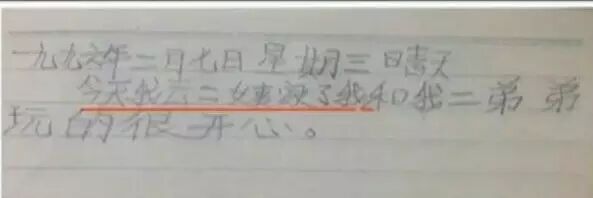 一九九六年二月七日 星期三 晴天
今天我去二姨家了我和我二弟弟
玩的很开心。